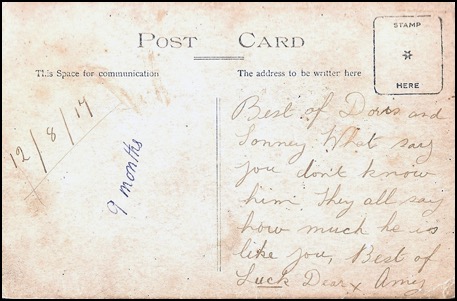 POST CARD
STAMP
HERE
This Space for communication
The address to be written here
12/8/17
9 months
Best of Doris and
Sonney What say
you don't know
him. They all say
how much he is
like you, Best of
Luck Dear x Amy